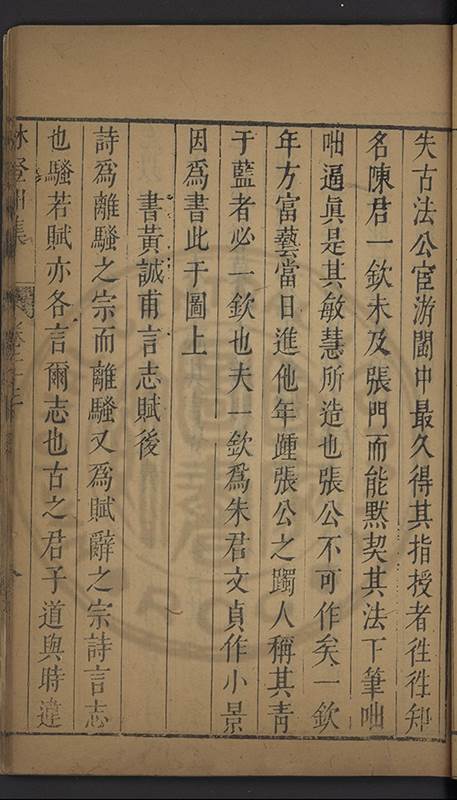 失古法公宦游閩中最久得其指授者徃徃知
名陳君一欽未及張門而能黙契其法下筆咄
咄逼眞是其敏慧所造也張公不可作矣一欽
年方富藝當日進他年踵張公之躅人稱其青
于藍者必一欽也夫一欽爲朱君文貞作小景
因爲書此于圖上
書黃誠甫言志賦後
詩爲離騷之宗而離騷又爲賦辭之宗詩言志
也騷若賦亦各言爾志也古之君子道與時違
林登州集